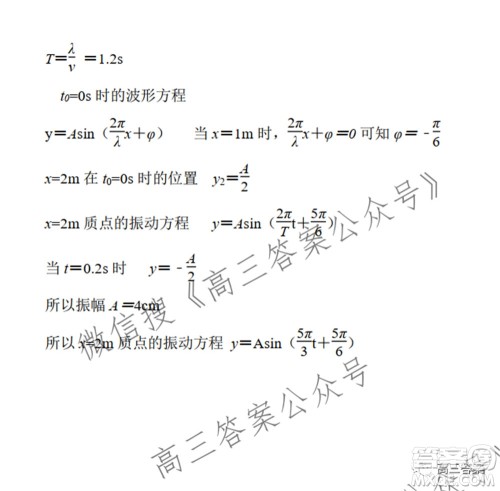 T=λ/v =1.2s
t₀=0s 时的波形方程
y=Asin（2π/λ x+φ） 当 x=1m 时，2π/λ x+φ=0 可知 φ= -π/6
x=2m 在 t₀=0s 时的位置 y₂=A/2
x=2m 质点的振动方程 y=Asin（2π/T t+5π/6）
当 t=0.2s 时 y= -A/2
所以振幅 A=4cm
所以 x=2m 质点的振动方程 y=Asin（5π/3 t+5π/6）
微信搜《高三答案公众号》
高三答案公众号
高三答案